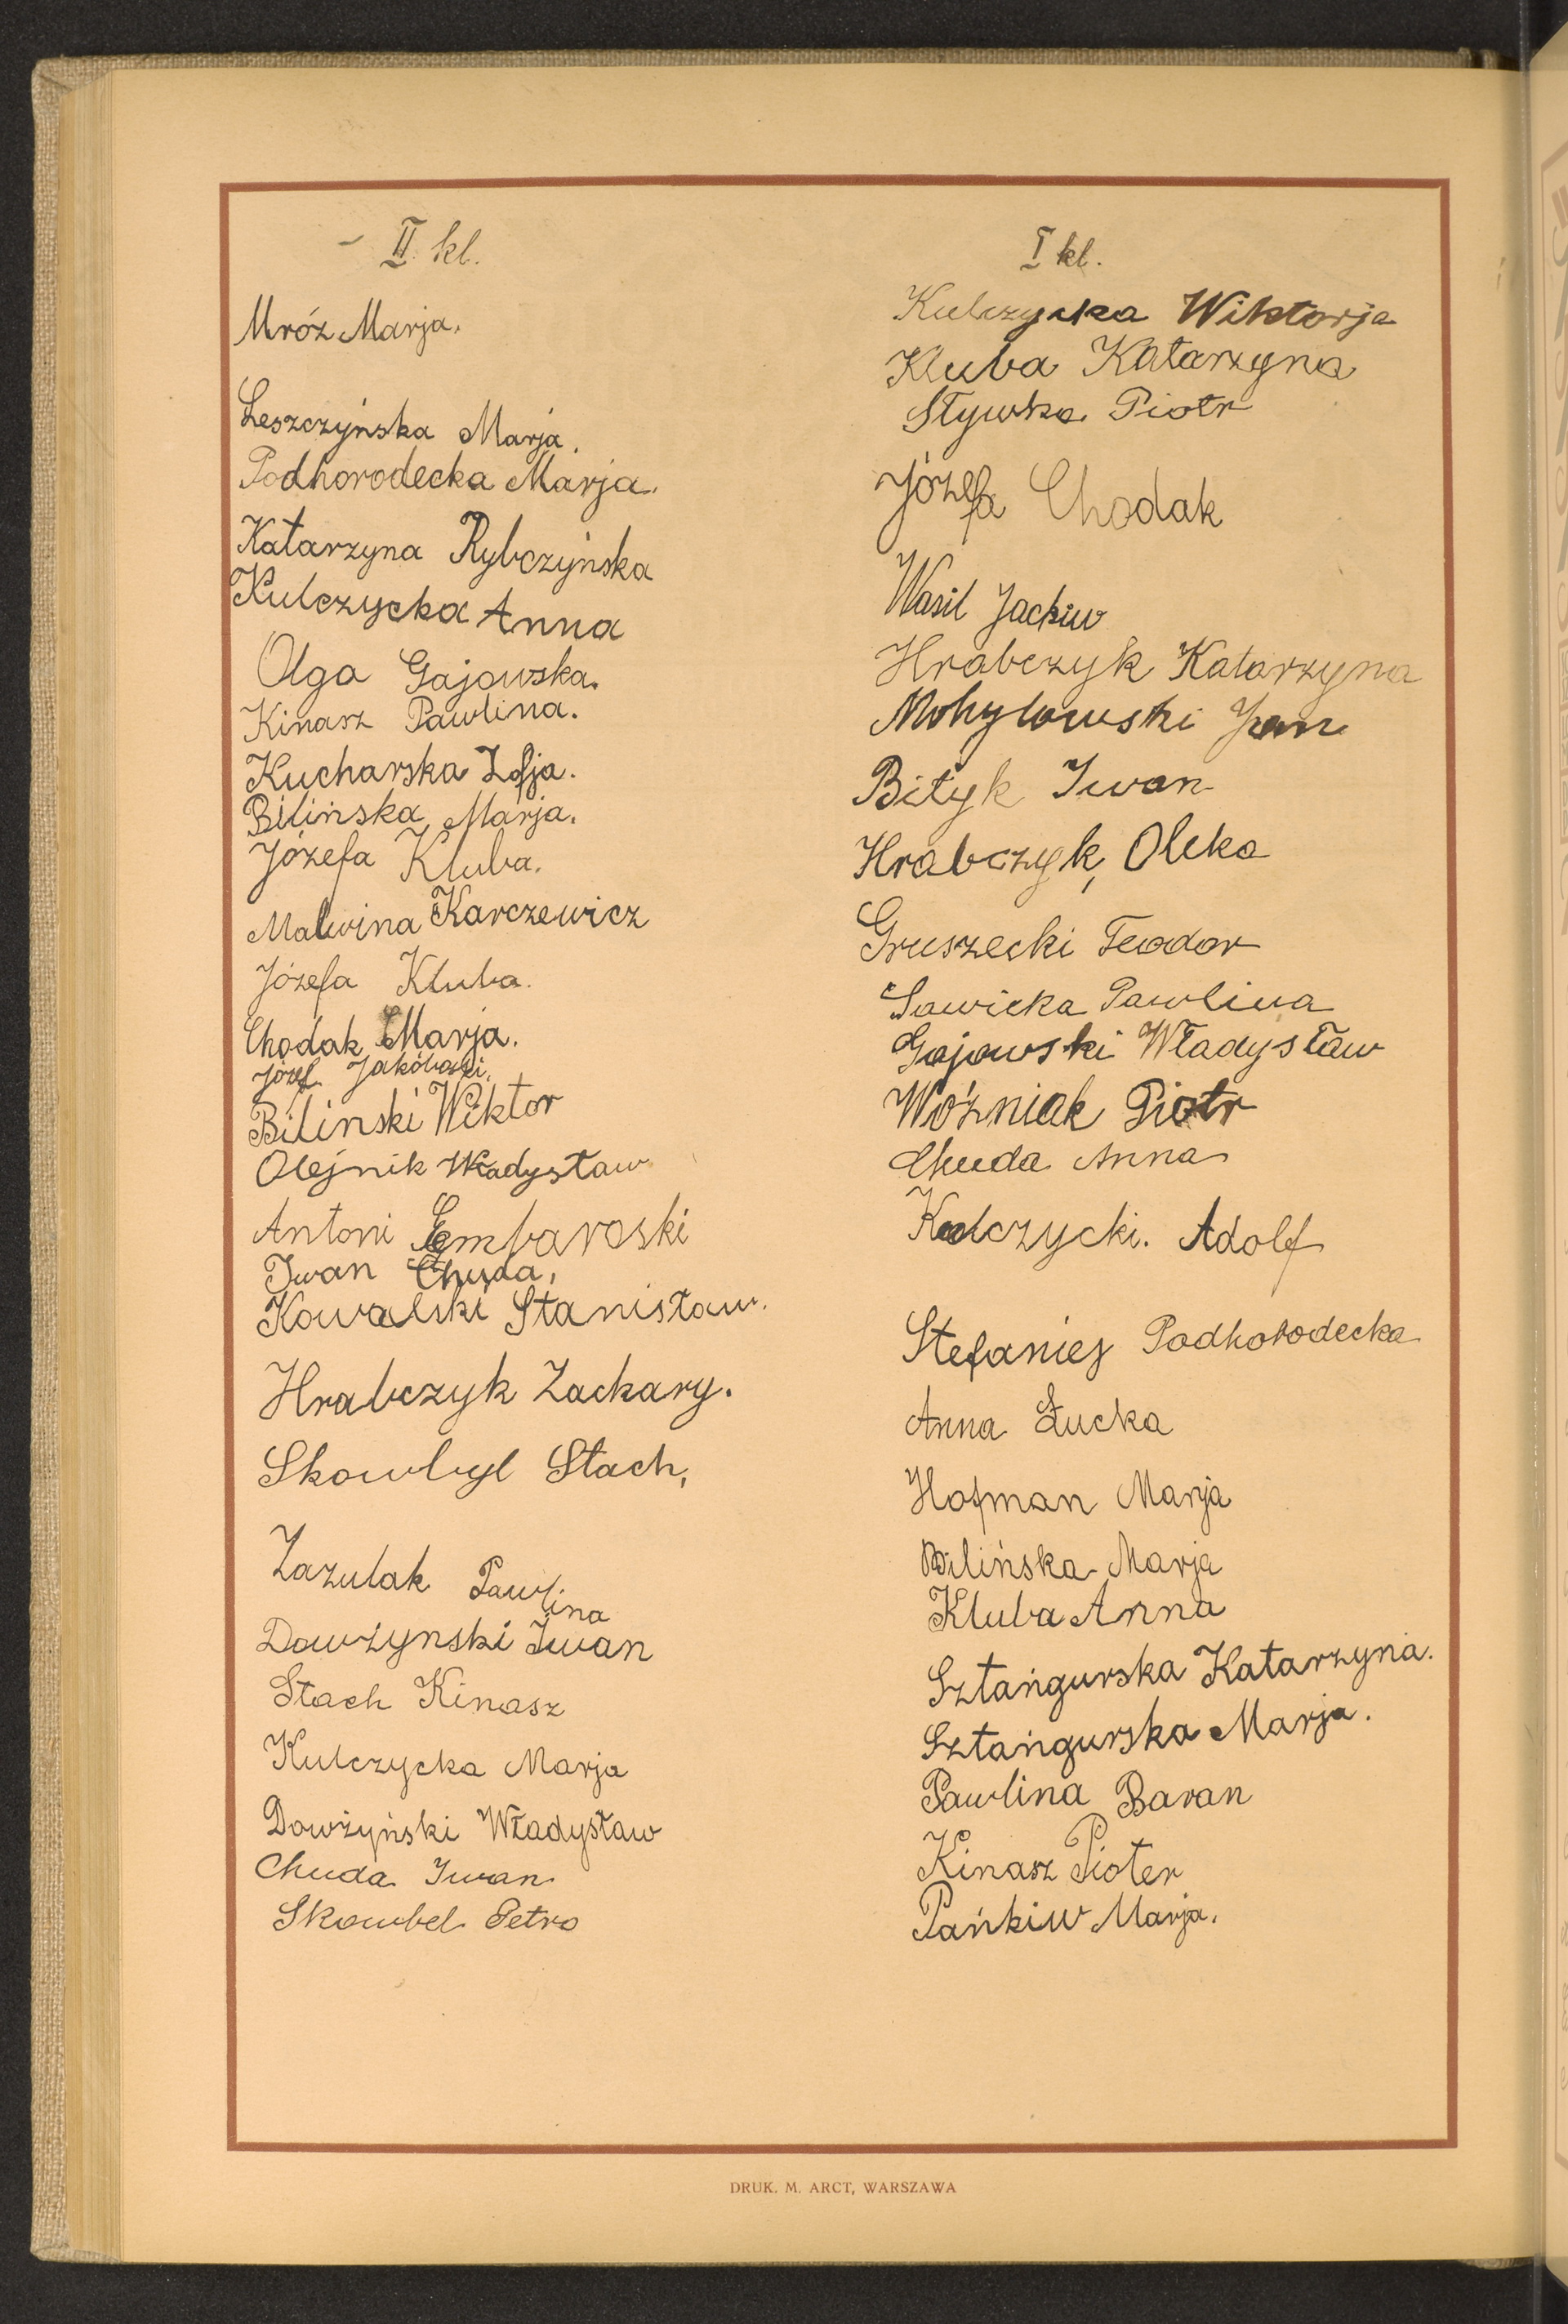 II kl.
Mróz Marja.
Leszczyńska Marja.
Podhorodecka Marja.
Katarzyna Rybczyńska
Kulczycka Anna
Olga Gajowska.
Kinasz Pawlina.
Kucharska Zofja.
Bilińska Marja.
Józefa Kluba.
Malwina Karczewicz
Józefa Kluba.
Chodak Marja.
Józef
Bilinski Wiktor
Olejnik Władysław
Antoni
Iwan Chuda,
Kowalski Stanisław.
Hrabczyk Zackary.
Skowbyl Stach,
Zazulak Pawlina
Dowżynski Iwan
Stach Kinasz
Kulczycka Marja
Dowżyński Władysław
Chuda Iwan
Skowbel Petro
I kl.
Kulczycka Wiktorja
Kluba Katarzyna
Stywka Piotr
Józefa Chodak
Wasil Jackiw
Hrabczyk Katarzyna
Mohylowski Jan
Bityk Iwan
Hrabczyk, Oleka
Gruszecki Teodor
Sawicka Pawlina
Gajowski Władysław
Woźniak Piotr
Chuda Anna
Kulczycki. Adolf
Stefaniej Podhorodecka
Anna Łucka
Hofman Marja
Bilińska Marja
Kluba Anna
Sztangurska Katarzyna.
Sztangurska Marja.
Pawlina Baran
Kinasz Pioter
Pańkiw Marja.
DRUK. M. ARCT, WARSZAWA